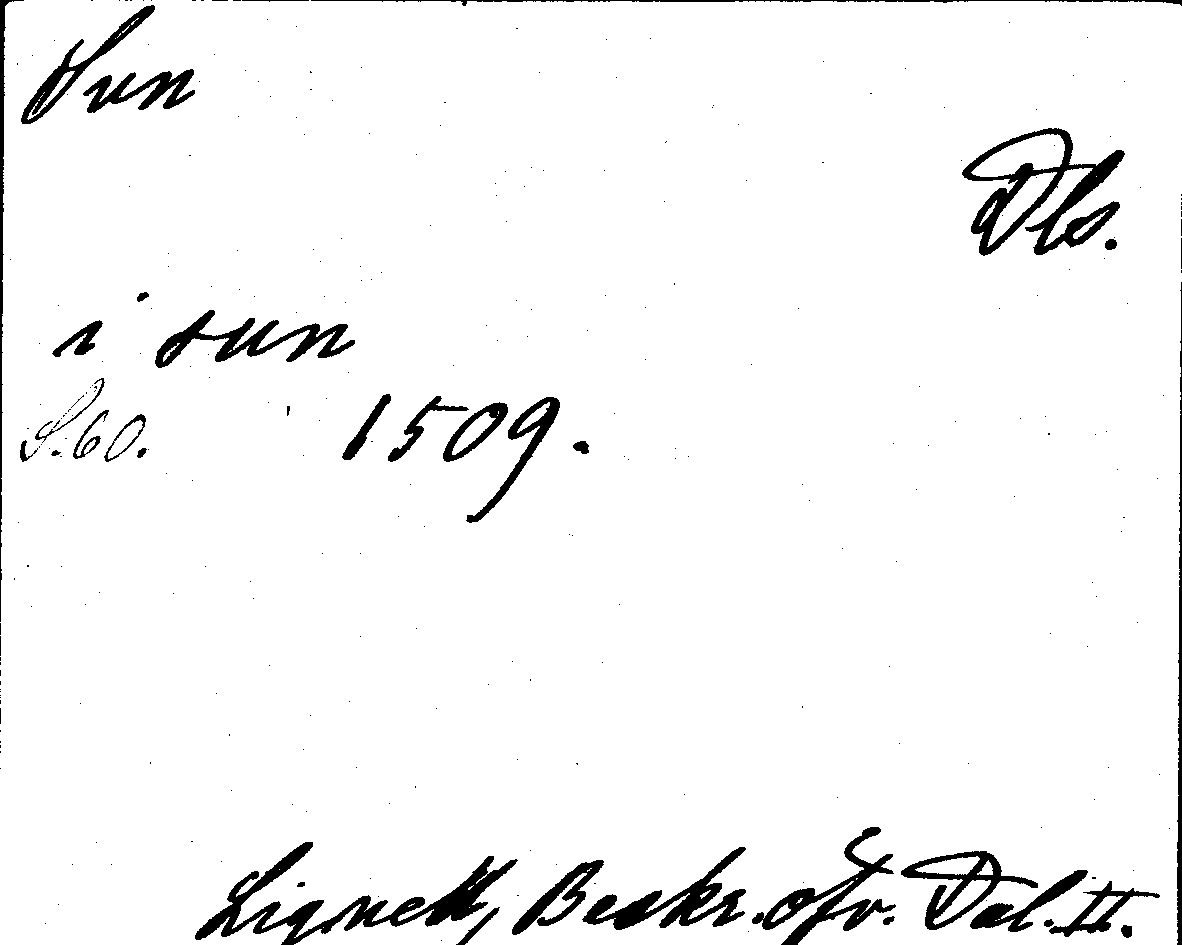 Sun
Dls.
i sun
S. 60. 1509.
Lignell, Beskr. öfv. Dal. II.